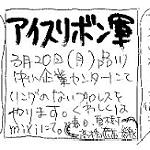 アイスリボン軍
3月20日(月)品川
中小企業センターにて
リングのないプロレスを
やります。くわしくは
mixiにて。